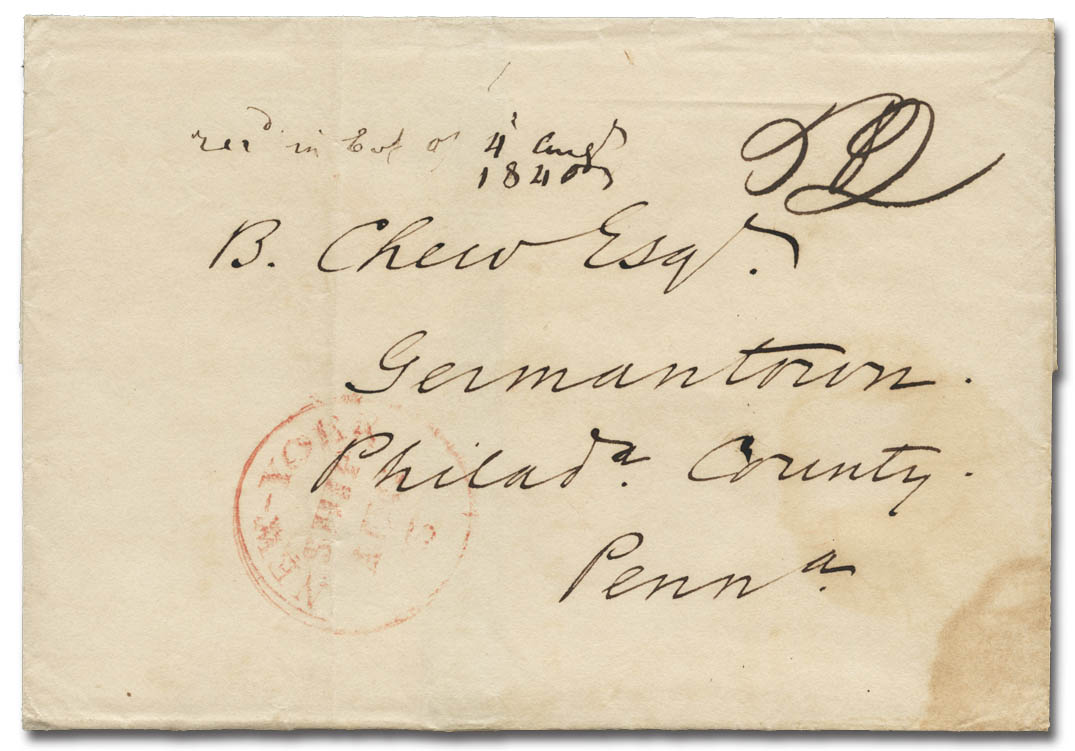 rec'd in 4' Augt
1840
B. Chew Esqr.
Germantown.
Philada. County.
Penna.
NEW-YORK
SHIP